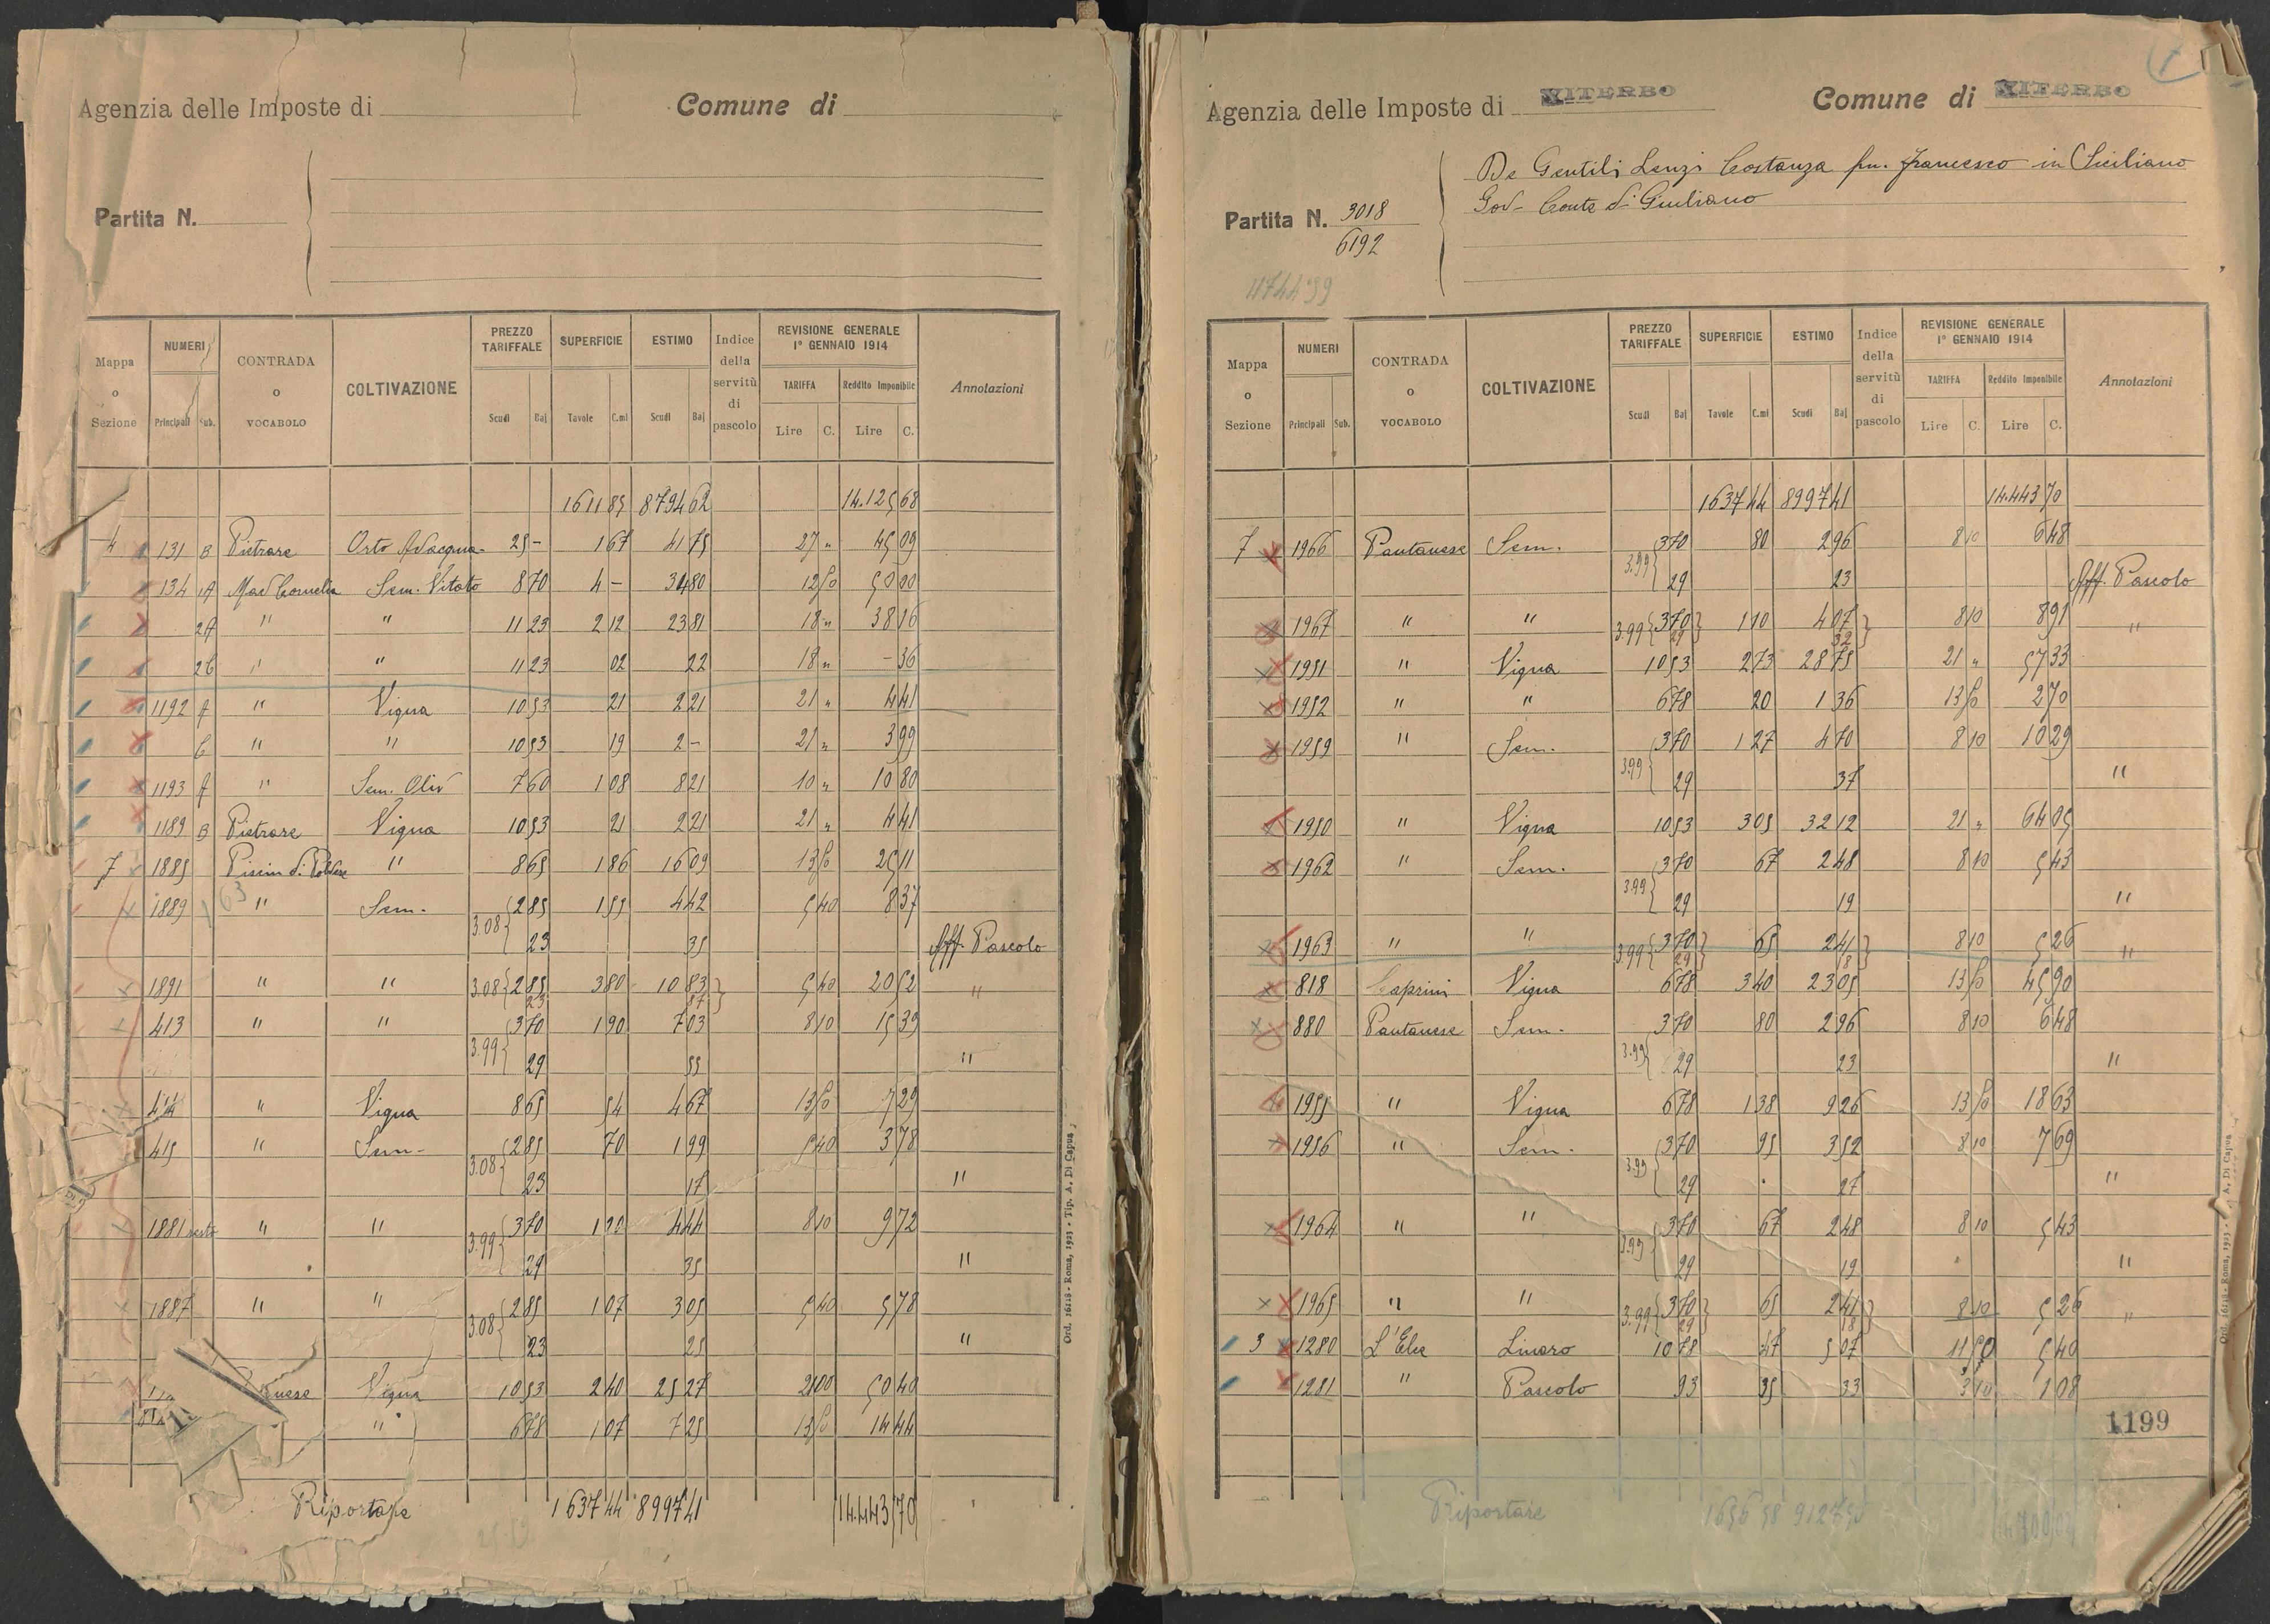 Agenzia delle Imposte di
Comune di
Partita N.
Mappa o Sezione
NUMERI
Principali Sub.
CONTRADA o VOCABOLO
COLTIVAZIONE
PREZZO TARIFFALE
Scudi Baj
SUPERFICIE
Tavole C.mi
ESTIMO
Scudi Baj
Indice della servitù di pascolo
REVISIONE GENERALE 1° GENNAIO 1914
TARIFFA
Lire C.
Reddito Imponibile
Lire C.
Annotazioni
1611 85 8794 62 14.125 68
4 131 B Pietrare Orto Adacqua. 25 - 1 67 41 75 27 " 45 09
134 1A Mad Cornelia Sem. Vitato 8 70 4 - 34 80 12 50 50 00
2A " " 11 23 2 12 23 81 18 " 38 16
2C " " 11 23 02 22 18 " - 36
1192 A " Vigna 10 53 21 2 21 21 " 4 41
C " " 10 53 19 2 - 21 " 3 99
1193 A " Sem. Oliv 7 60 1 08 8 21 10 " 10 80
1189 B Pietrare Vigna 10 53 21 2 21 21 " 4 41
7 1885 Piscin di " 8 65 1 86 16 09 13 50 25 11
1889 " Sem. 3.08 { 2 85 1 55 4 42 5 40 8 37
23 35 Aff. Pascolo
1891 " " 3.08 { 2 85 3 80 10 83 } 5 40 20 52 "
23 87
413 " " 3 70 1 90 7 03 8 10 15 39
3.99 { 29 55 "
414 " Vigna 8 65 54 4 67 13 50 7 29
415 " Sem. 2 85 70 1 99 5 40 3 78
3.08 { 23 17 "
1881 resto " " 3 70 1 20 4 44 8 10 9 72
3.99 { 29 35 "
1887 " " 2 85 1 07 3 05 5 40 5 78
3.08 { 23 25 "
Vigna 10 53 2 40 25 27 21 00 50 40
" 6 78 1 07 7 25 13 50 14 44
Riportare 1637 44 8997 41 14.443 70
Ord. 16118 - Roma, 1923 - Tip. A. Di Capua
Agenzia delle Imposte di VITERBO
Comune di VITERBO
De Gentili Lenzi Costanza fu. Francesco in Ciciliano
God- Conte di Giuliano
Partita N. 3018
6192
Mappa o Sezione
NUMERI
Principali Sub.
CONTRADA o VOCABOLO
COLTIVAZIONE
PREZZO TARIFFALE
Scudi Baj
SUPERFICIE
Tavole C.mi
ESTIMO
Scudi Baj
Indice della servitù di pascolo
REVISIONE GENERALE 1° GENNAIO 1914
TARIFFA
Lire C.
Reddito Imponibile
Lire C.
Annotazioni
1637 44 8997 41 14.443 70
7 1966 Pantanese Sem. 3 70 80 2 96 8 10 6 48
3.99 { 29 23 Aff. Pascolo
1967 " " 3.99 { 3 70 } 1 10 4 07 } 8 10 8 91 "
29 32
1951 " Vigna 10 53 2 73 28 75 21 " 57 33
1952 " " 6 78 20 1 36 13 50 2 70
1959 " Sem. 3 70 1 27 4 70 8 10 10 29
3.99 { 29 37 "
1950 " Vigna 10 53 3 05 32 12 21 " 64 05
1962 " Sem. 3 70 67 2 48 8 10 5 43
3.99 { 29 19 "
1963 " " 3.99 { 3 70 } 65 2 41 } 8 10 5 26 "
29 18
818 Caprini Vigna 6 78 3 40 23 05 13 50 45 90
880 Pantanese Sem. 3 70 80 2 96 8 10 6 48
3.99 { 29 23 "
1955 " Vigna 6 78 1 38 9 26 13 50 18 63
1956 " Sem. 3 70 95 3 52 8 10 7 69
3.99 { 29 27 "
1964 " " 3 70 67 2 48 8 10 5 43
3.99 { 29 19 "
1965 " " 3.99 { 3 70 } 65 2 41 } 8 10 5 26 "
29 18
3 1280 L'Elce Linaro 10 78 47 5 07 11 50 5 40
1281 " Pascolo 93 35 33 3 10 1 08
1199
Riportare 1656 58